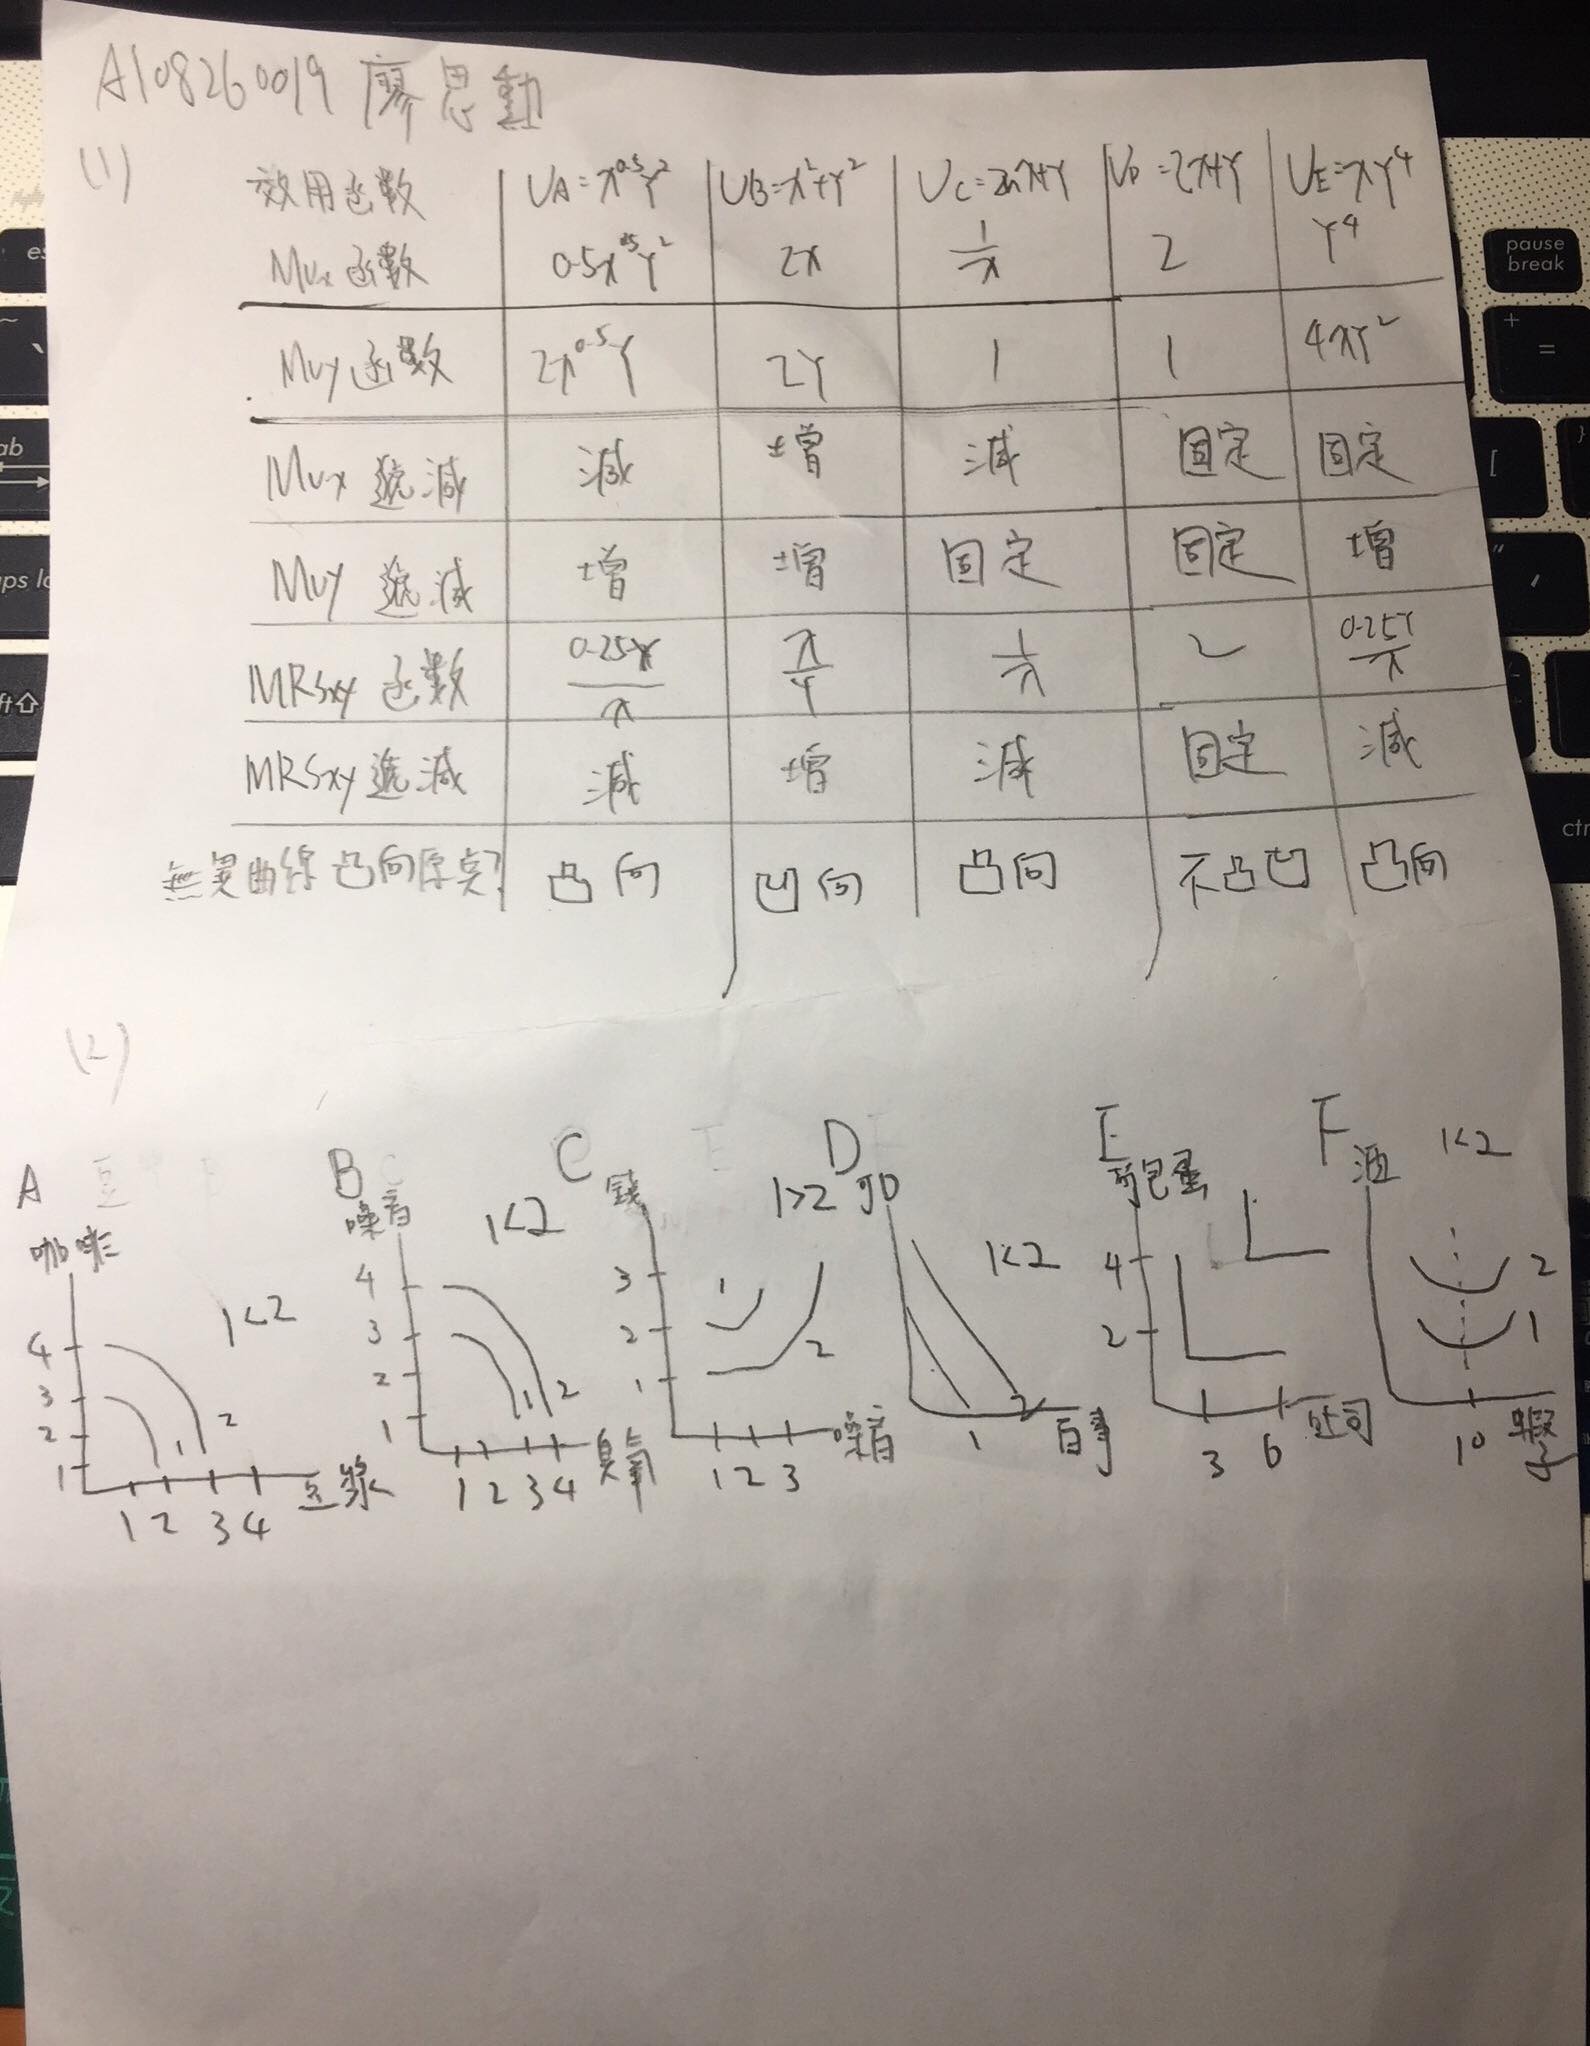 A108260019 廖思動
(1)
效用函數 UA=x^0.5Y^2 UB=x^2+Y^2 UC=lnx+Y UD=2x+Y UE=xY^4
Mux函數 0.5x^0.5Y^2 2x 1/x 2 Y^4
Muy函數 2x^0.5Y 2Y 1 1 4xY^2
Mux 遞減 減 增 減 固定 固定
Muy 遞減 增 增 固定 固定 增
MRSxy 函數 0.25Y/x x/Y 1/x 2 0.25Y/x
MRSxy 遞減 減 增 減 固定 減
無異曲線凸向原點? 凸向 凹向 凸向 不凸凹 凸向
(2)
A B C D E F
咖啡 1<2 4 3 2 1 1 2 豆漿 1 2 3 4
噪音 1<2 4 3 2 1 1 2 臭氧 1 2 3 4
錢 1>2 3 2 1 1 2 噪音 1 2 3
可口 1<2 百事 1 2
荷包蛋 4 2 吐司 3 6
酒 1<2 2 1 蝦子 10
pause
break
+
=
[
}
"
,
~
、
ctr